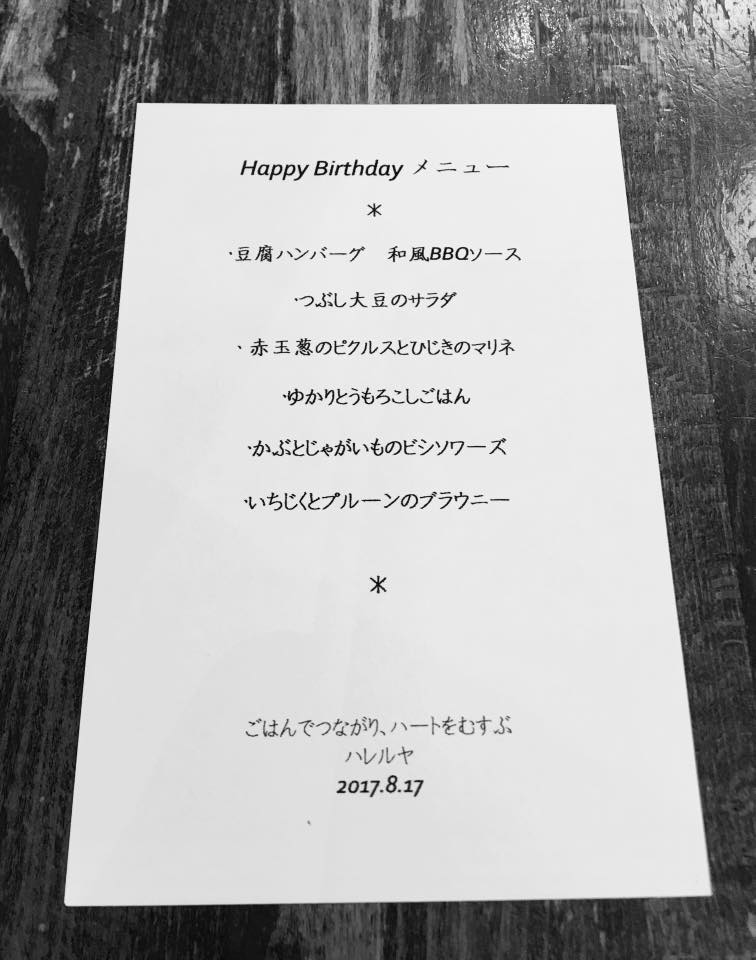 Happy Birthday メニュー
＊
・豆腐ハンバーグ　和風BBQソース
・つぶし大豆のサラダ
・赤玉葱のピクルスとひじきのマリネ
・ゆかりとうもろこしごはん
・かぶとじゃがいものビシソワーズ
・いちじくとプルーンのブラウニー
＊
ごはんでつながり、ハートをむすぶ
ハレルヤ
2017.8.17